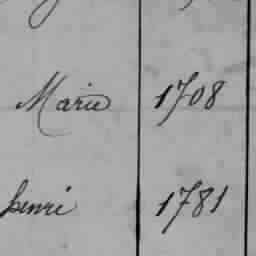 Marie 1708
henri 1781